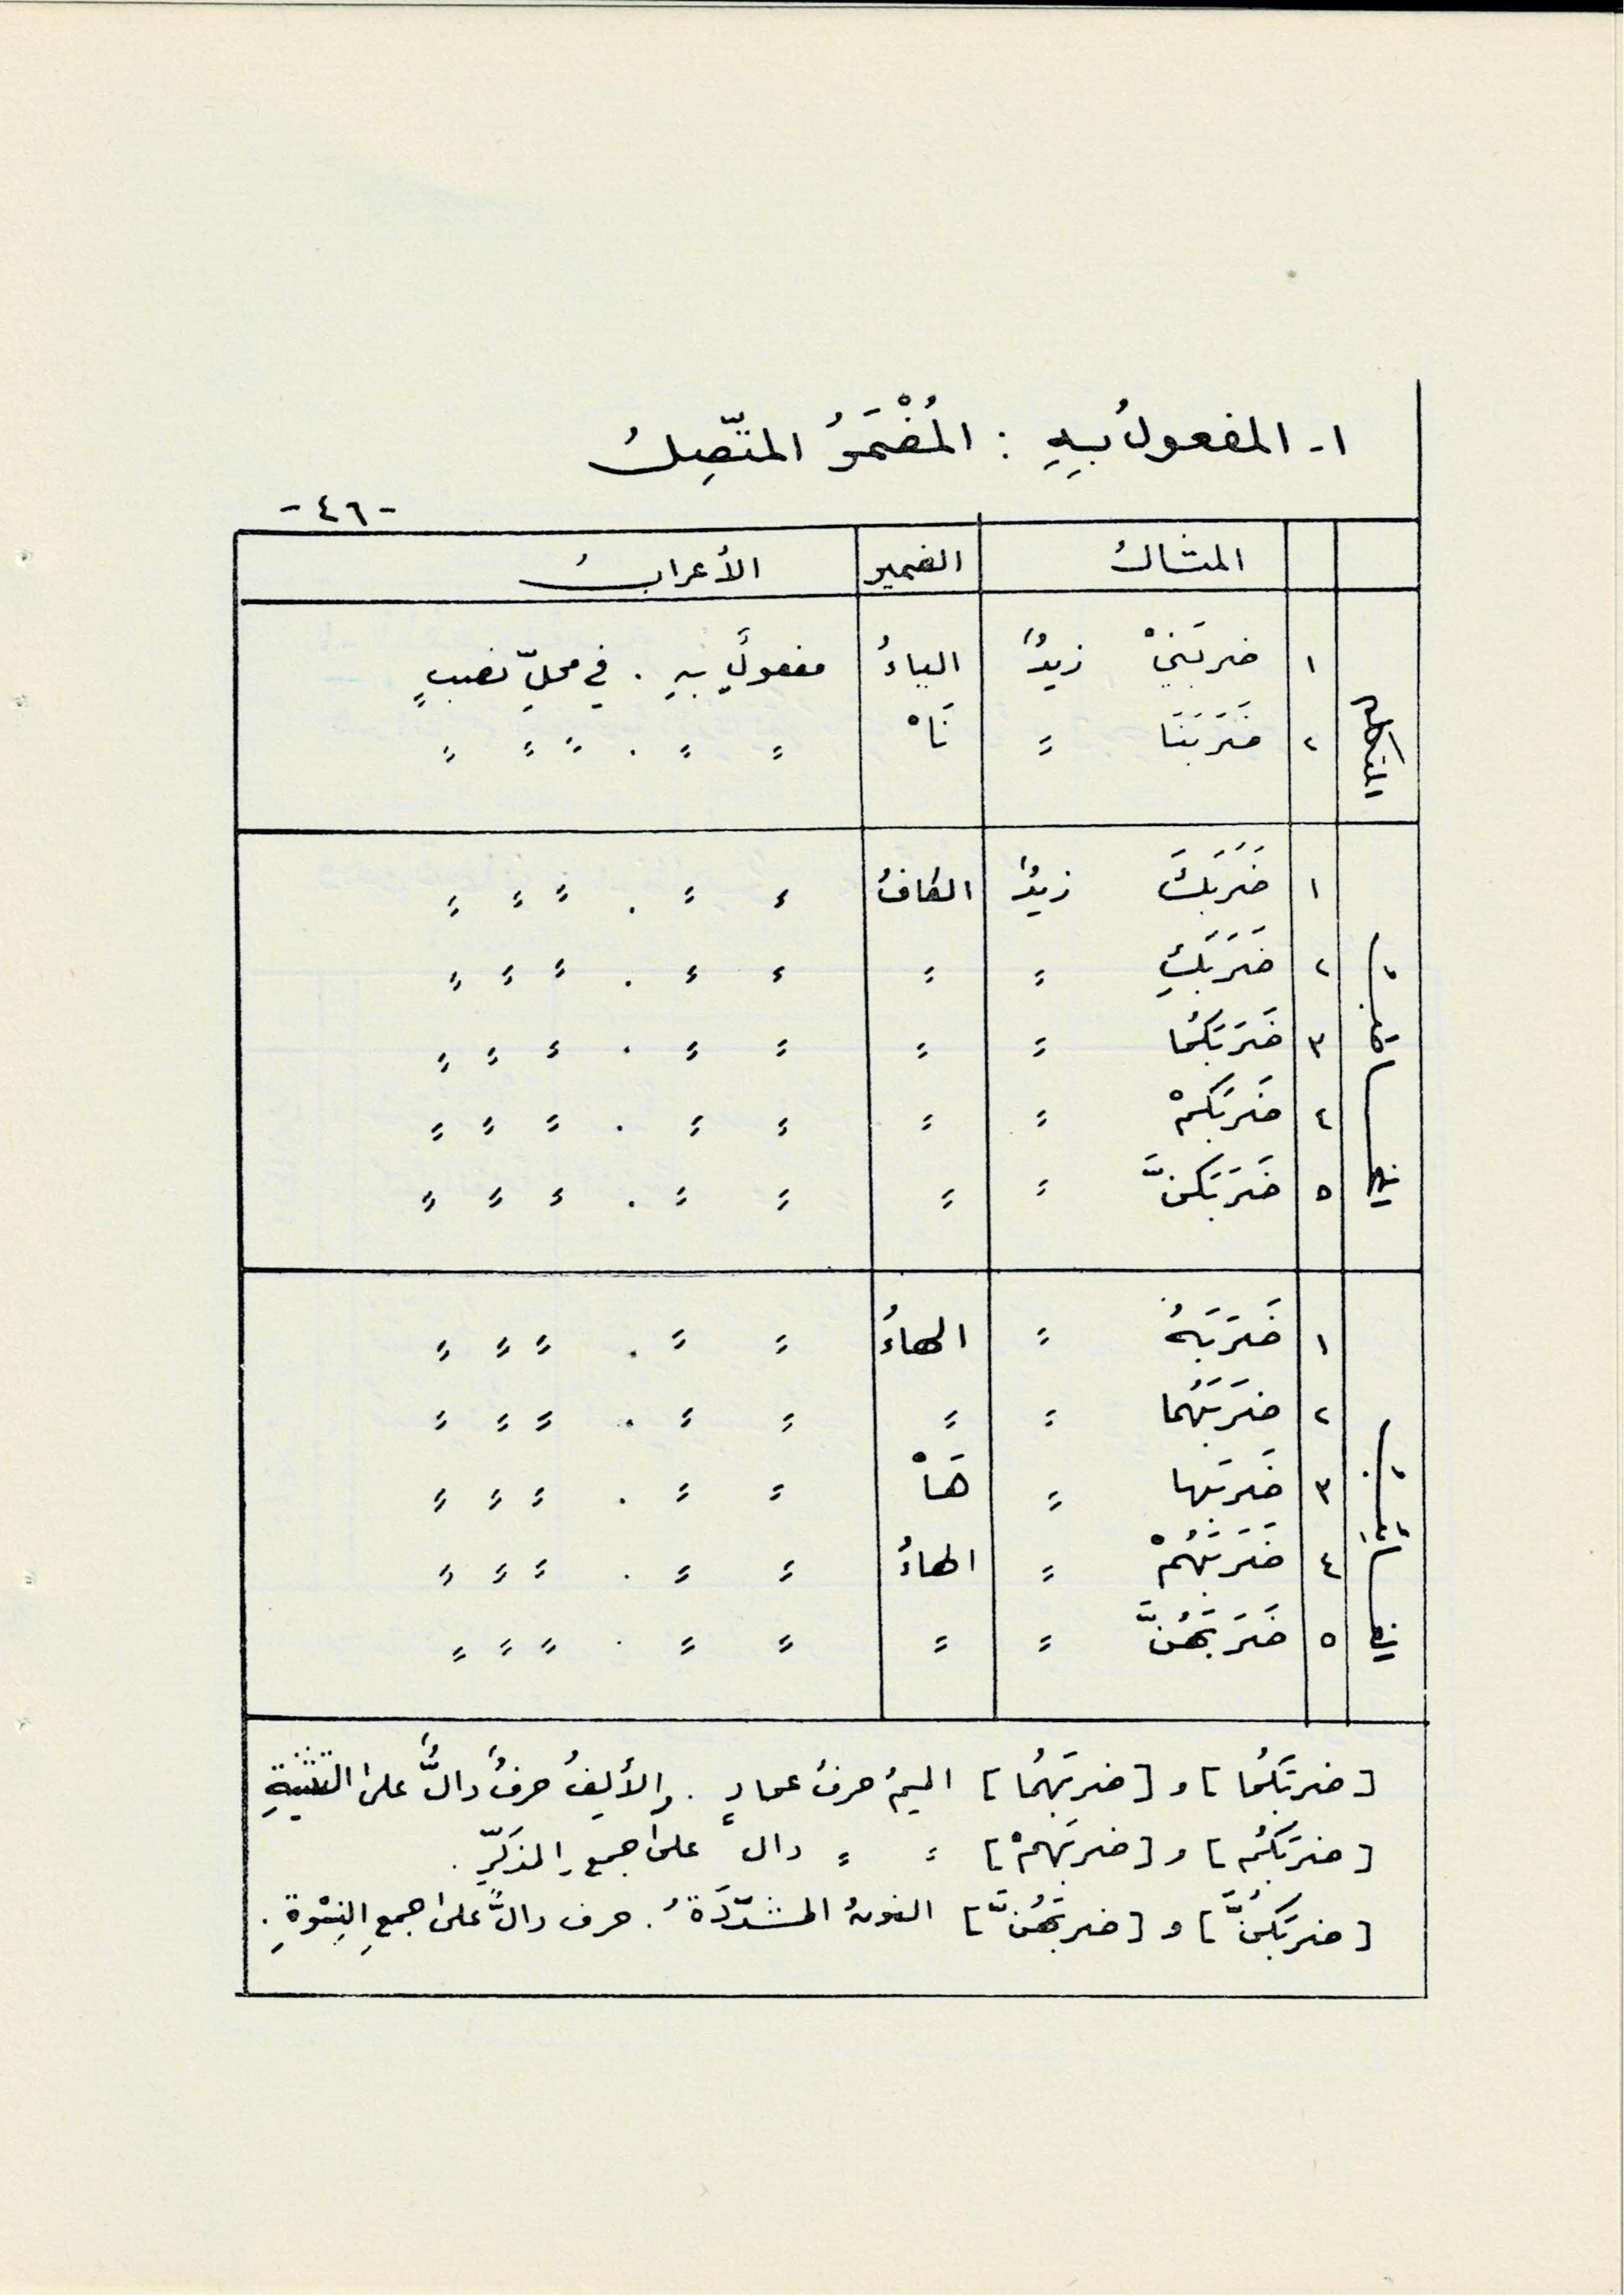 ١ـ المفعولُ بِهِ : المُضْمَرُ المتّصِلُ
-٤٦-
المثالُ الضمير الأعرابُ
المتكلم
١ ضربَنِيْ زيدٌ الياءُ مفعولٌ بهِ . في محلِّ نصبٍ
٢ ضَرَبَنَا = نَاْ = = . = = =
المخاطب
١ ضَرَبَكَ زيدٌ الكافُ = = . = = =
٢ ضَرَبَكِ = = = = . = = =
٣ ضَرَبَكُمَا = = = = . = = =
٤ ضَرَبَكُمْ = = = = . = = =
٥ ضَرَبَكُنَّ = = = = . = = =
الغائب
١ ضَرَبَهُ = الهاءُ = = . = = =
٢ ضَرَبَهُمَا = = = = . = = =
٣ ضَرَبَها = هَاْ = = . = = =
٤ ضَرَبَهُمْ = الهاءُ = = . = = =
٥ ضَرَبَهُنَّ = = = = . = = =
[ضربَكُمَا] و [ضربَهُمَا] الميمُ حرفُ عمادٍ . والأَلِفُ حرفٌ دالٌّ على التثنيةِ
[ضرَبَكُم] و [ضربَهُمْ] = = دال على جمع المذكّرِ .
[ضرَبَكُنَّ] و [ضربَهُنَّ] النونُ المشدّدَةُ . حرف دالٌّ على جمعِ النِسْوةِ .